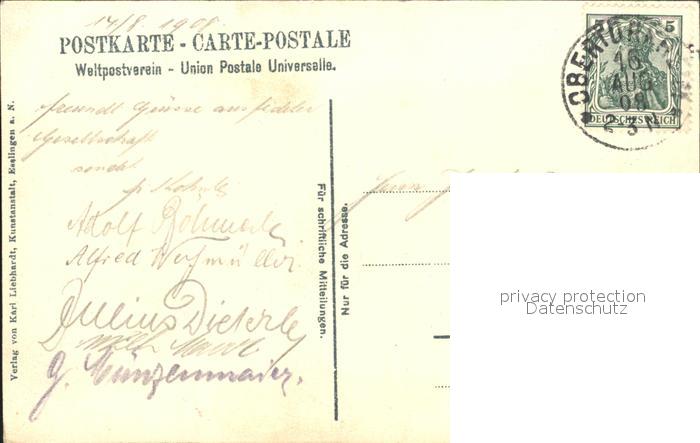 17/8. 1908.
POSTKARTE - CARTE-POSTALE
Weltpostverein - Union Postale Universelle.
5 5
DEUTSCHES REICH
16
AUG
08
2-3 N
Verlag von Karl Liebhardt, Kunstanstalt, Esslingen a. N.
freundl Grüsse aus fideler
Gesellschaft
sendet
Adolf
Alfred
Julius Dieterle
G. Münzenmaier.
Für schriftliche Mitteilungen.
Nur für die Adresse.
privacy protection
Datenschutz